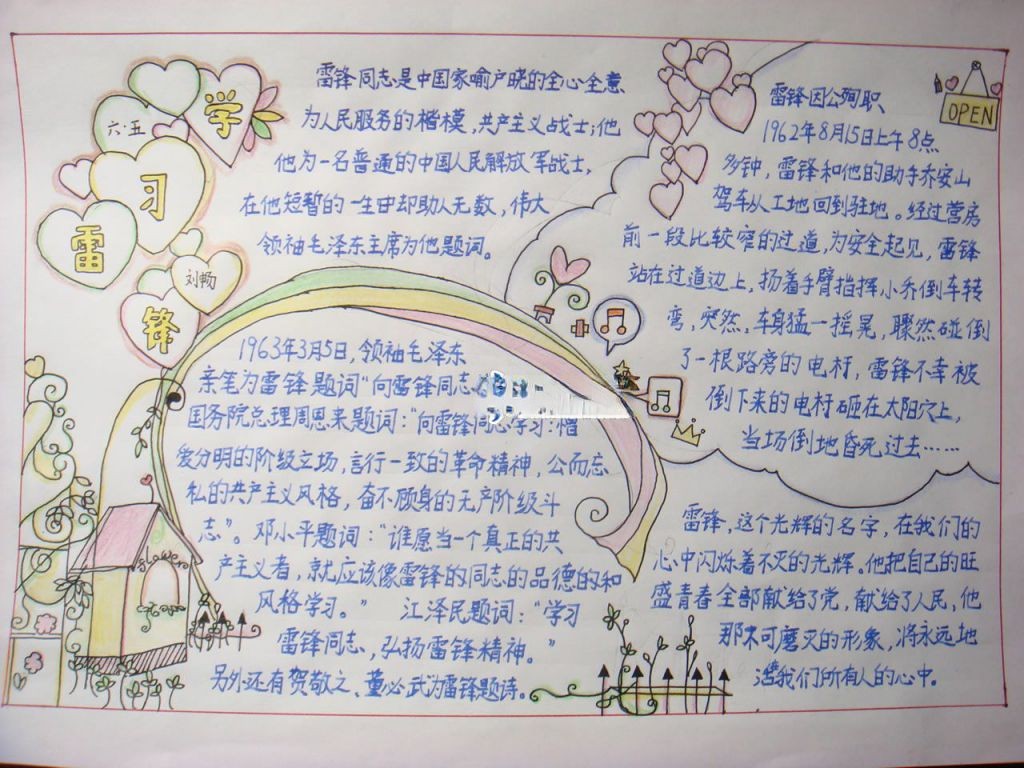 学
六·五
习
雷
刘畅
锋
雷锋同志是中国家喻户晓的全心全意
为人民服务的楷模，共产主义战士；他
他为一名普通的中国人民解放军战士，
在他短暂的一生中却助人无数，伟大
领袖毛泽东主席为他题词。
1963年3月5日，领袖毛泽东
亲笔为雷锋题词“向雷锋同志
国务院总理周恩来题词：“向雷锋同志学习：憎
爱分明的阶级立场，言行一致的革命精神，公而忘
私的共产主义风格，奋不顾身的无产阶级斗
志”。邓小平题词：“谁愿当一个真正的共
产主义者，就应该像雷锋的同志的品德的和
风格学习。” 江泽民题词：“学习
雷锋同志，弘扬雷锋精神。”
另外还有贺敬之、董必武为雷锋题诗。
OPEN
雷锋因公殉职
1962年8月15日上午8点
多钟，雷锋和他的助手乔安山
驾车从工地回到驻地。经过营房
前一段比较窄的过道，为安全起见，雷锋
站在过道边上，扬着手臂指挥小乔倒车转
弯，突然，车身猛一摇晃，骤然碰倒
了一根路旁的电杆，雷锋不幸被
倒下来的电杆砸在太阳穴上，
当场倒地昏死过去……
雷锋，这个光辉的名字，在我们的
心中闪烁着不灭的光辉。他把自己的旺
盛青春全部献给了党，献给了人民，他
那不可磨灭的形象，将永远地
活我们所有人的心中。